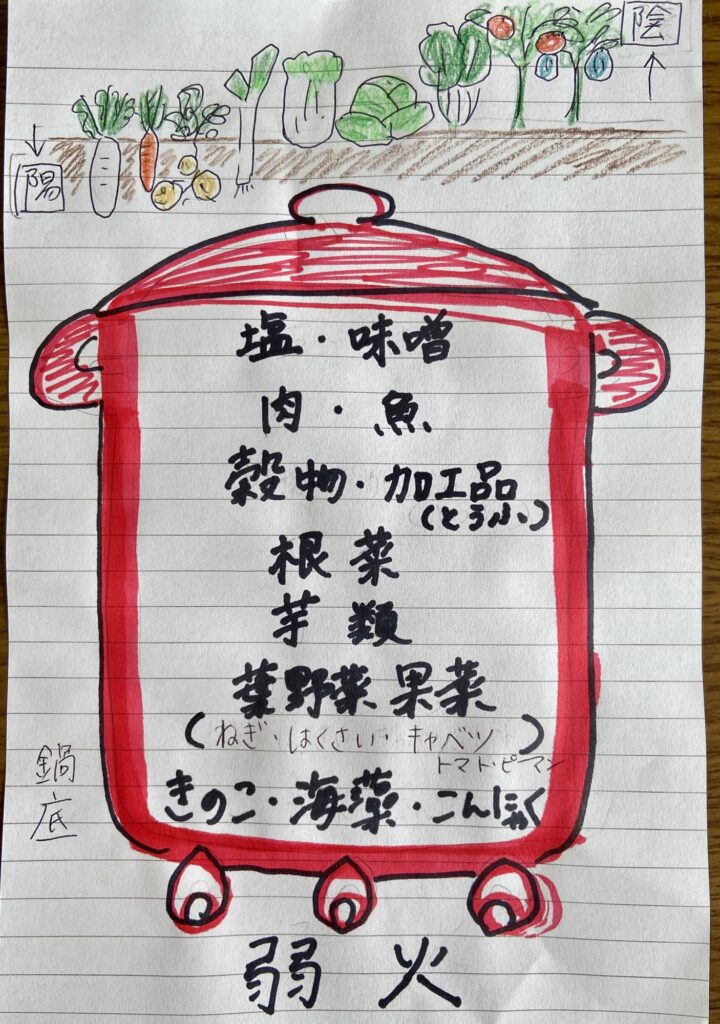 陰
陽
塩・味噌
肉・魚
穀物・加工品
(とうふ)
根菜
芋類
葉野菜 果菜
(ねぎ・はくさい・キャベツ)
トマト・ピーマン
きのこ・海藻・こんにゃく
鍋底
弱火